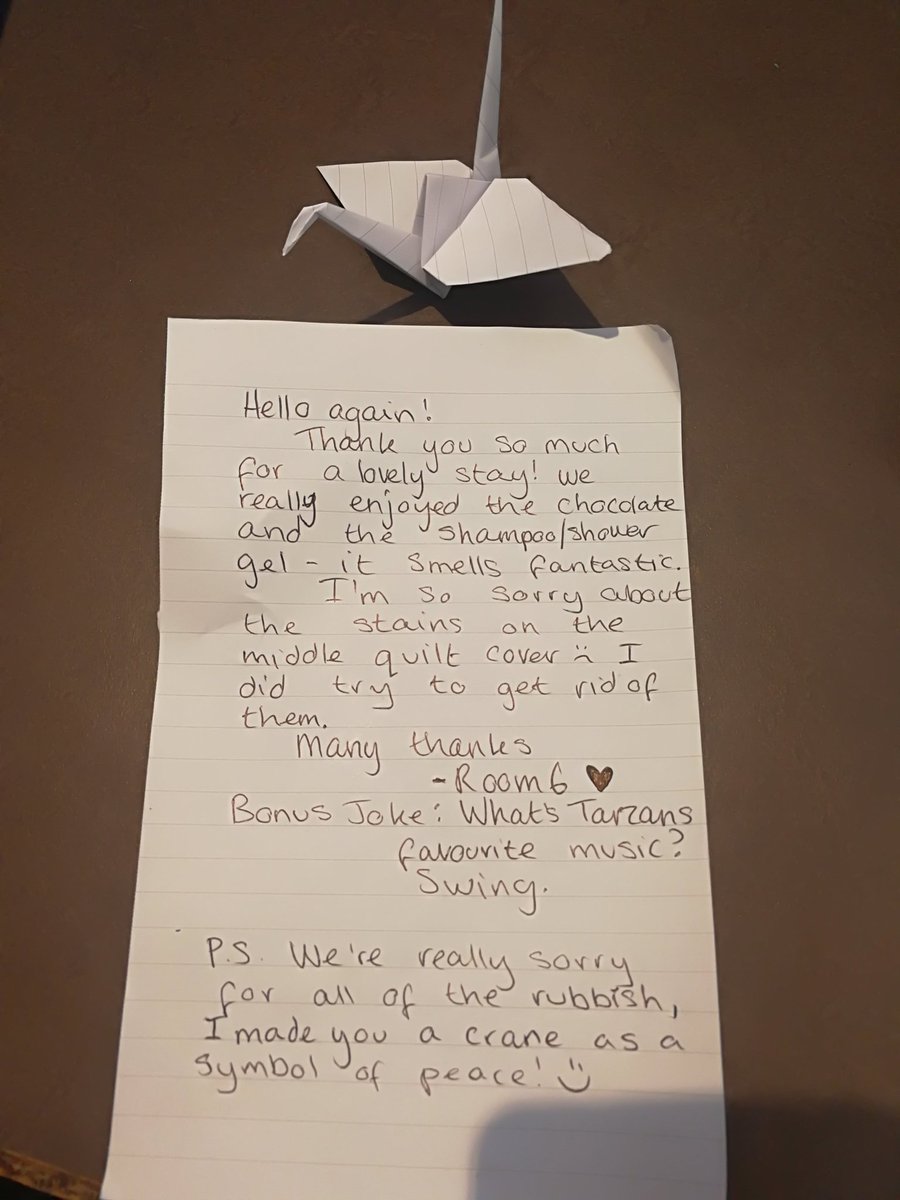 Hello again!
Thank you so much
for a lovely stay! we
really enjoyed the chocolate
and the shampoo/shower
gel - it smells fantastic.
I'm so sorry about
the stains on the
middle quilt cover :( I
did try to get rid of
them.
Many thanks
- Room 6 ♥
Bonus Joke: What's Tarzans
favourite music?
Swing.
P.S. We're really sorry
for all of the rubbish,
I made you a crane as a
symbol of peace! :)